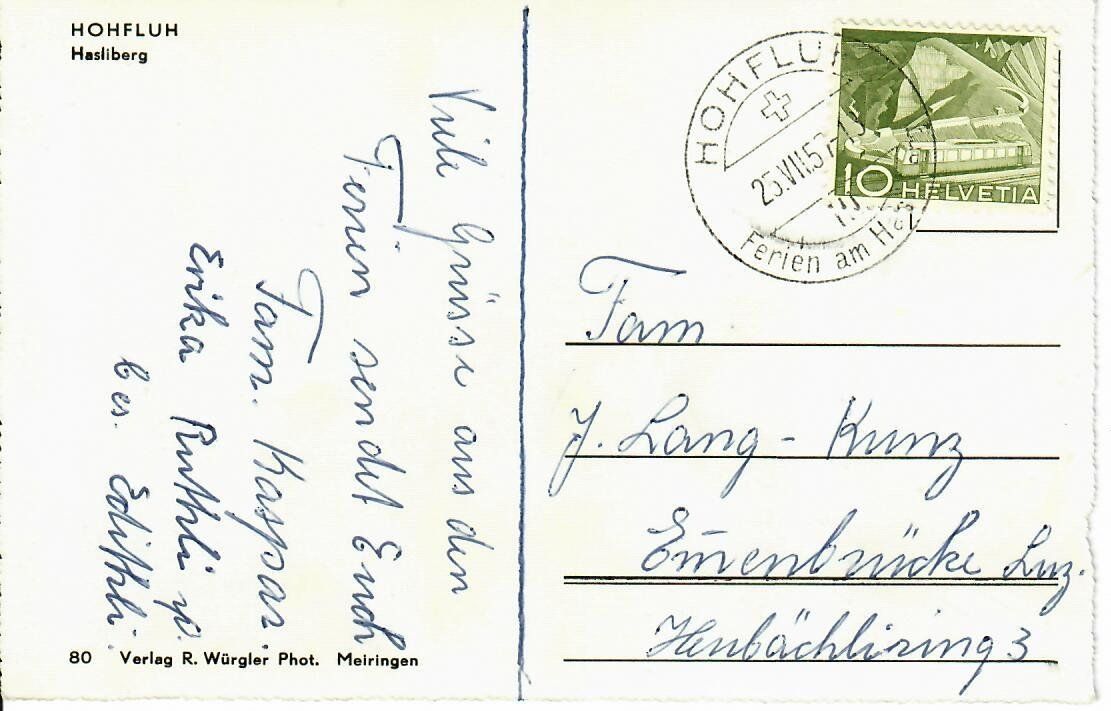 HOHFLUH
Hasliberg
Viele Grüsse aus den
Ferien sendet Euch
Fam. Kaspar.
Erika Ruthli
bes. Edithli.
80 Verlag R. Würgler Phot. Meiringen
HOHFLUH
25.VII.57
Ferien am Has
10 HELVETIA
Fam
J. Lang - Kunz
Emenbrücke Luz.
3